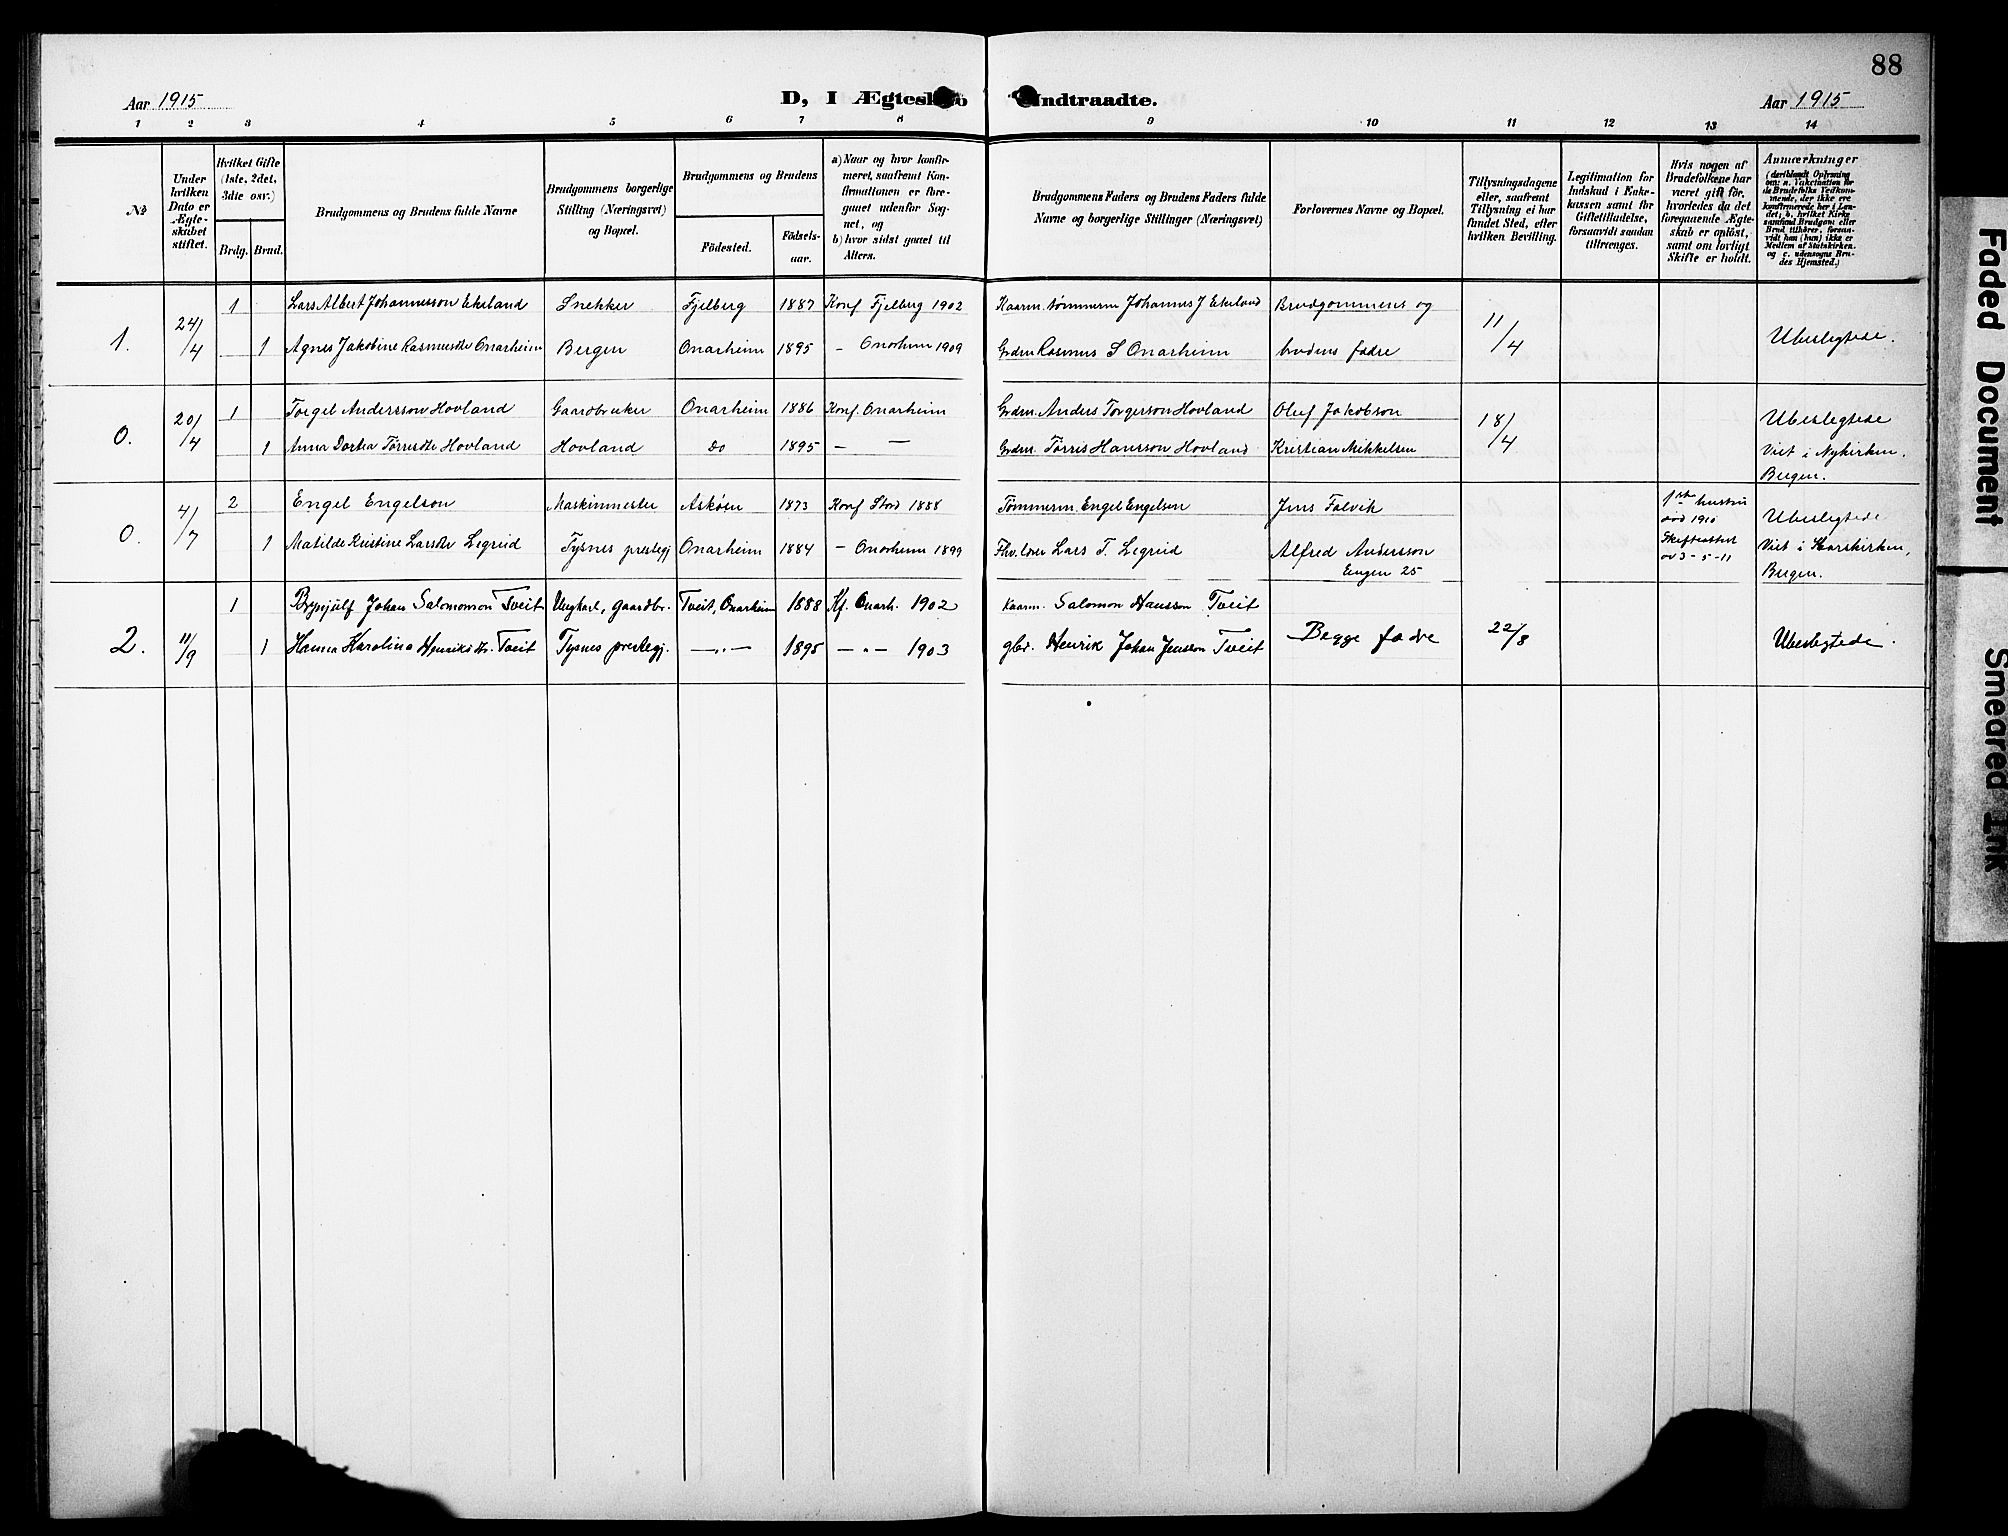 88
Aar 1915
D, I Ægteskab Indtraadte.
Aar 1915
1 2 3 4 5 6 7 8 9 10 11 12 13 14
№
Under hvilken Dato er Ægteskabet stiftet.
Hvilket Gifte (1ste, 2det, 3die osv.)
Brdg. Brud.
Brudgommens og Brudens fulde Navne
Brudgommens borgerlige Stilling (Næringsvei) og Bopæl.
Brudgommens og Brudens
Födested.
Födsels-aar.
a) Naar og hvor konfirmeret, saafremt Konfirmationen er foregaaet udenfor Sognet, og
b) hvor sidst gaaet til Alters.
Brudgommens Faders og Brudens Faders fulde Navne og borgerlige Stillinger (Næringsvei)
Forlovernes Navne og Bopæl.
Tillysningsdagene eller, saafremt Tillysning ei har fundet Sted, efter hvilken Bevilling.
Legitimation for Indskud i Enkekassen samt for Giftetilladelse, forsaavidt saadan tiltrænges.
Hvis nogen af Brudefolkene har været gift før, hvorledes da det foregaaende Ægteskab er oplöst, samt om lovligt Skifte er holdt.
Anmærkninger (deriblandt Oplysning om: a. Vaksination for de Brudefolks Vedkommende, der ikke ere konfirmerede her i Landet; b. hvilket Kirkesamfund Brudgom eller Brud tilhörer, forsaavidt han (hun) ikke er Medlem af Statskirken. og c. udensogns Brudes Hjemsted.)
1. 24/4 1 Lars Albert Johannesson Ekeland Snekker Fjelberg 1887 Konf Fjelberg 1902 Kaarm. tømmerm Johannes J Ekeland Brudgommens og 11/4 Ubeslegtede.
1 Agnes Jakobine Rasmusdtr Onarheim Bergen Onarheim 1895 - Onarheim 1909 Grdm Rasmus S Onarheim brudens fædre
0. 20/4 1 Torgel Andersson Hovland Gaardbruker Onarheim 1886 Konf. Onarheim Grdm. Anders Torgerson Hovland Oluf Jakobson 18/4 Ubeslegtede
1 Anna Dortea Tørresdtr Hovland Hovland Do 1895 - — Grdm. Tørris Hansson Hovland Kristian Mikkelsen Viet i Nykirken, Bergen.
0. 4/7 2 Engel Engelson Maskinmester Askøen 1873 Konf Stord 1888 Tømmerm. Engel Engelsen Jens Falvik 1ste hustru død 1910 Ubeslegtede
1 Matilde Kristine Larsdtr Legreid Tysnes prestegj Onarheim 1884 - Onarheim 1899 Fhv. lærer Lars T. Legreid Alfred Andersson Engen 25 Skifteattest av 3-5-11 Viet i Korskirken, Bergen.
2. 11/9 1 Brynjulf Johan Salomonson Tveit Ungkarl, gaardbr. Tveit, Onarheim 1888 Kf. Onarh. 1902 Kaarm. Salomon Hansson Tveit Begge fædre 22/8 Ubeslegtede.
1 Hanna Karolina Henriksdtr. Tveit Tysnes prestegj. —„— 1895 —„— 1903 gbr. Henrik Johan Jensson Tveit
Faded Document
Smeared Ink